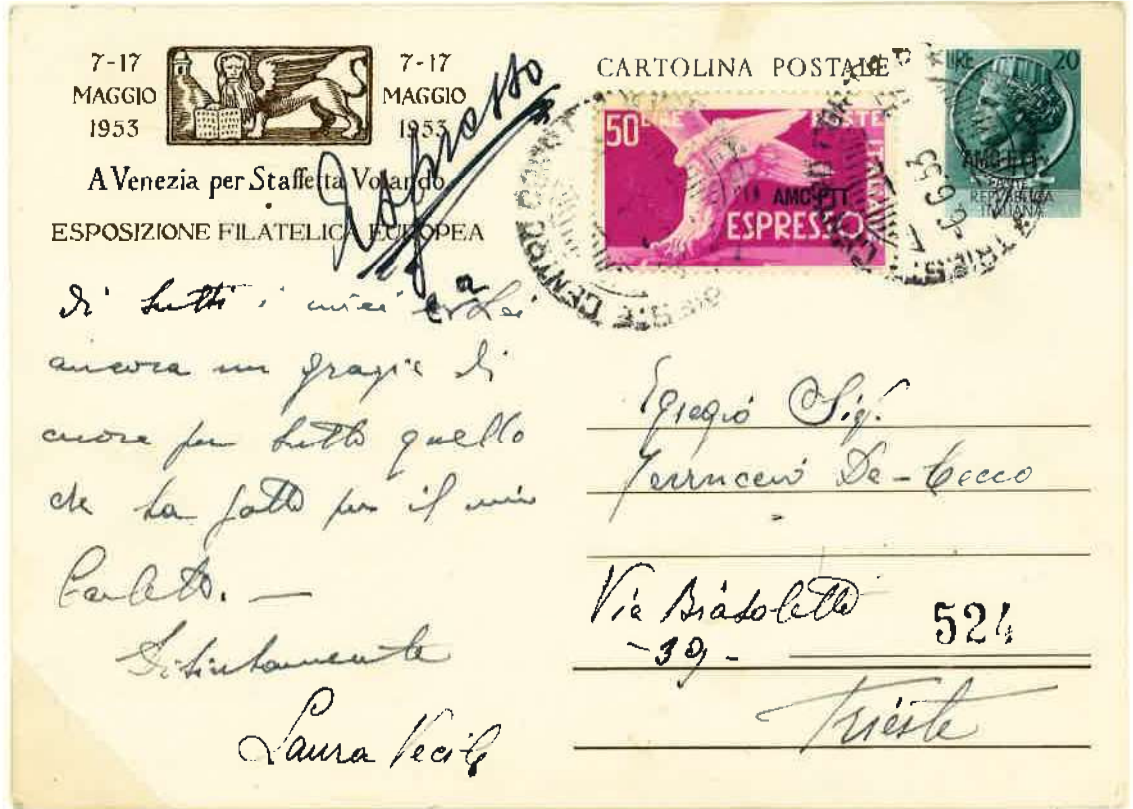 7-17
MAGGIO
1953
7-17
MAGGIO
1953
A Venezia per Staffetta Volando
ESPOSIZIONE FILATELICA EUROPEA
Espresso
CARTOLINA POSTALE
50 LIRE POSTE ITALIANE
AMG-FTT
ESPRESSO
LIRE 20
AMG-FTT
POSTE
REPUBBLICA
ITALIANA
TRIESTE CENTRO
6.53
di tutti i miei e a Lei
ancora un grazie di
cuore per tutto quello
che ha fatto per il mio
Carletto. —
Distintamente
Laura
Egregio Sig.
Ferruccio De-Cecco
Via Biasoletto
-39-
524
Trieste